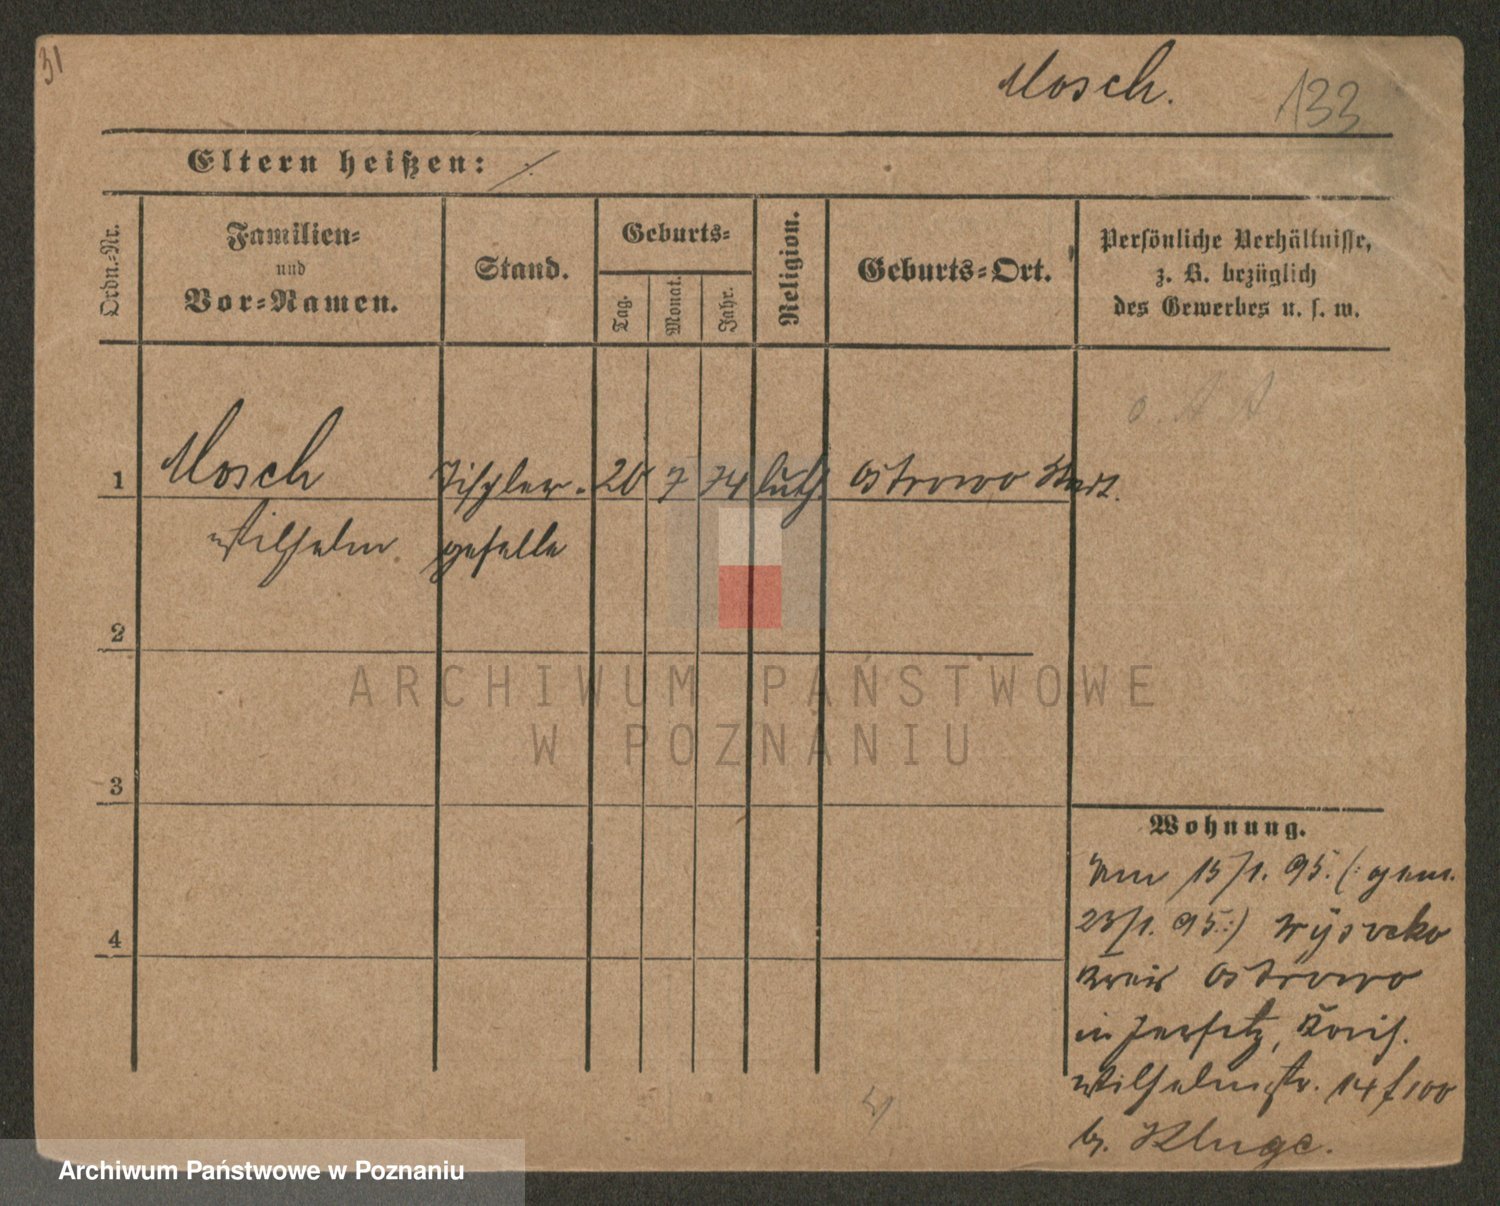 31
Mosch.
133
Eltern heißen:
Ordn.-Nr.
Familien-
und
Vor-Namen.
Stand.
Geburts-
Tag.
Monat.
Jahr.
Religion.
Geburts-Ort.
Persönliche Verhältnisse,
z. B. bezüglich
des Gewerbes u. s. w.
1 Mosch Tischler- 20 7 74 luth Ostrowo Stadt.
Wilhelm geselle
2
3
4
Wohnung.
15/1. 95. (: gem.
23/1. 95:) Wysocko
Kreis Ostrowo
in Jersitz,
Wilhelmstr. 14
b. Kluge.
ARCHIWUM PAŃSTWOWE
W POZNANIU
Archiwum Państwowe w Poznaniu